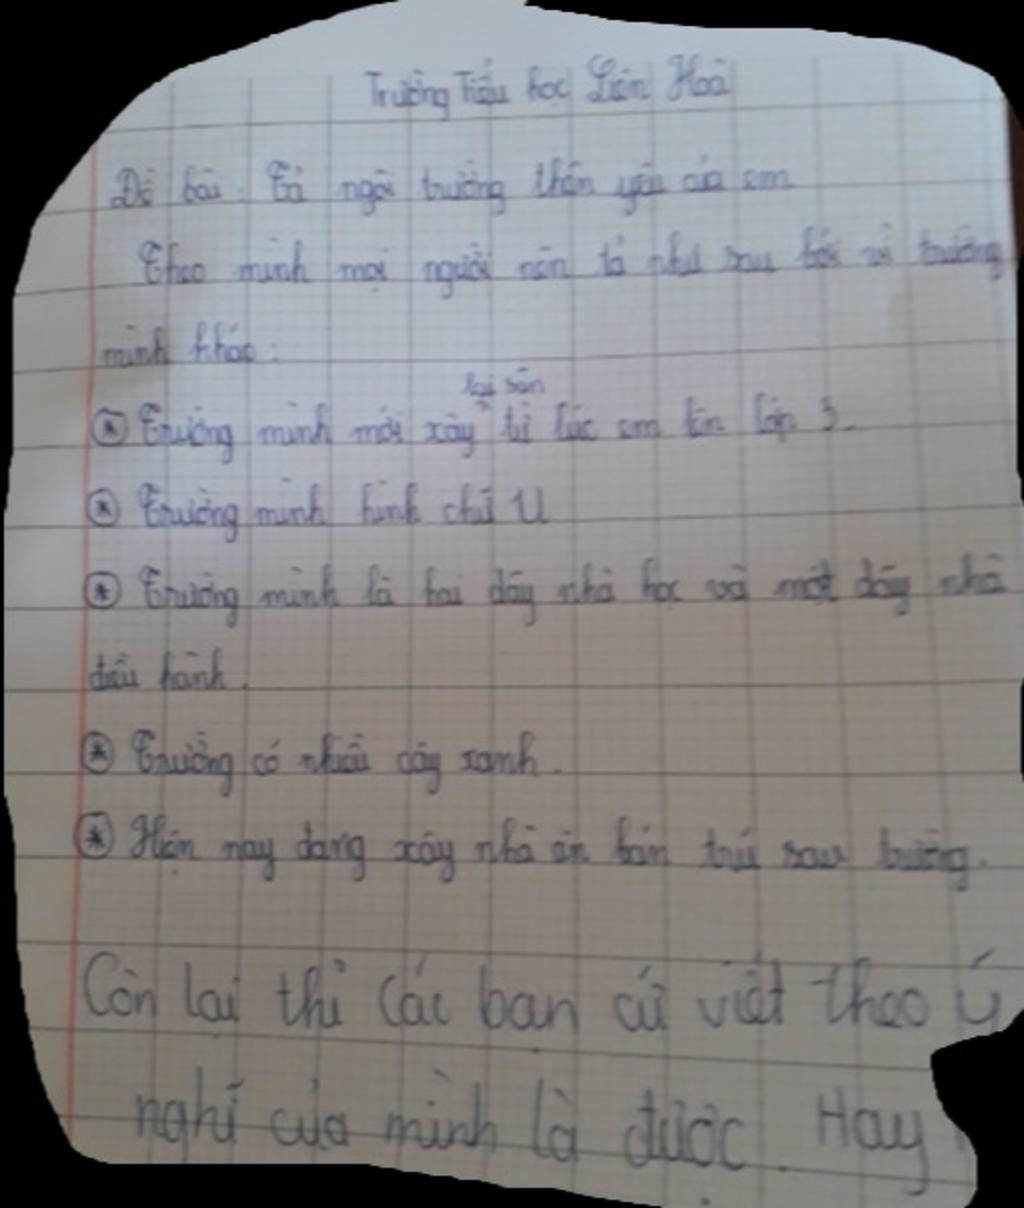 Trường Tiểu học Liên Hoà
Đề bài: Tả ngôi trường thân yêu của em
Theo mình mọi người nên tả như sau bởi vì trường
mình khác:
lại sân
Trường mình mới xây từ lúc em lên lớp 3.
Trường mình hình chữ U
Trường mình là hai dãy nhà học và một dãy nhà
điều hành.
Trường có nhiều cây xanh.
Hiện nay đang xây nhà ăn bán trú sau trường.
Còn lại thì các bạn cứ viết theo ý
nghĩ của mình là được. Hay